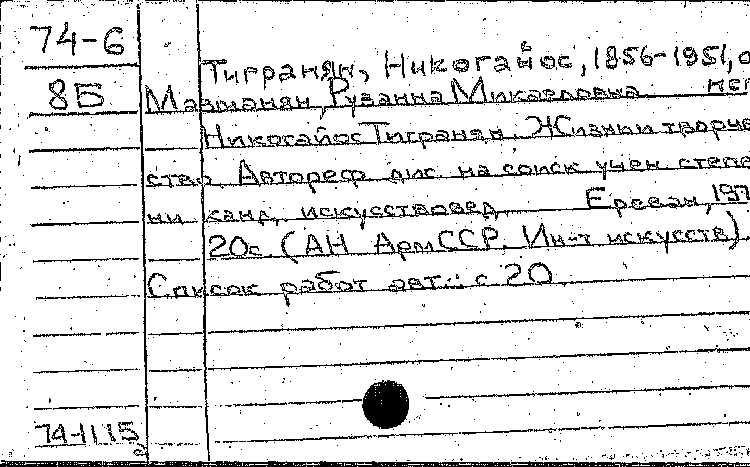 74-6
Тигранян, Никогайос, 1856-1951, о
8Б
Мазманян, Рузанна Микаеловна. нем
Никогайос Тигранян. Жизнь и творче
ство. Автореф. дис. на соиск. учен. степе
ни канд. искусствовед. Ереван, 197
20с. (АН АрмССР. Ин-т искусств).
Список работ авт.: с. 20.
74-1115